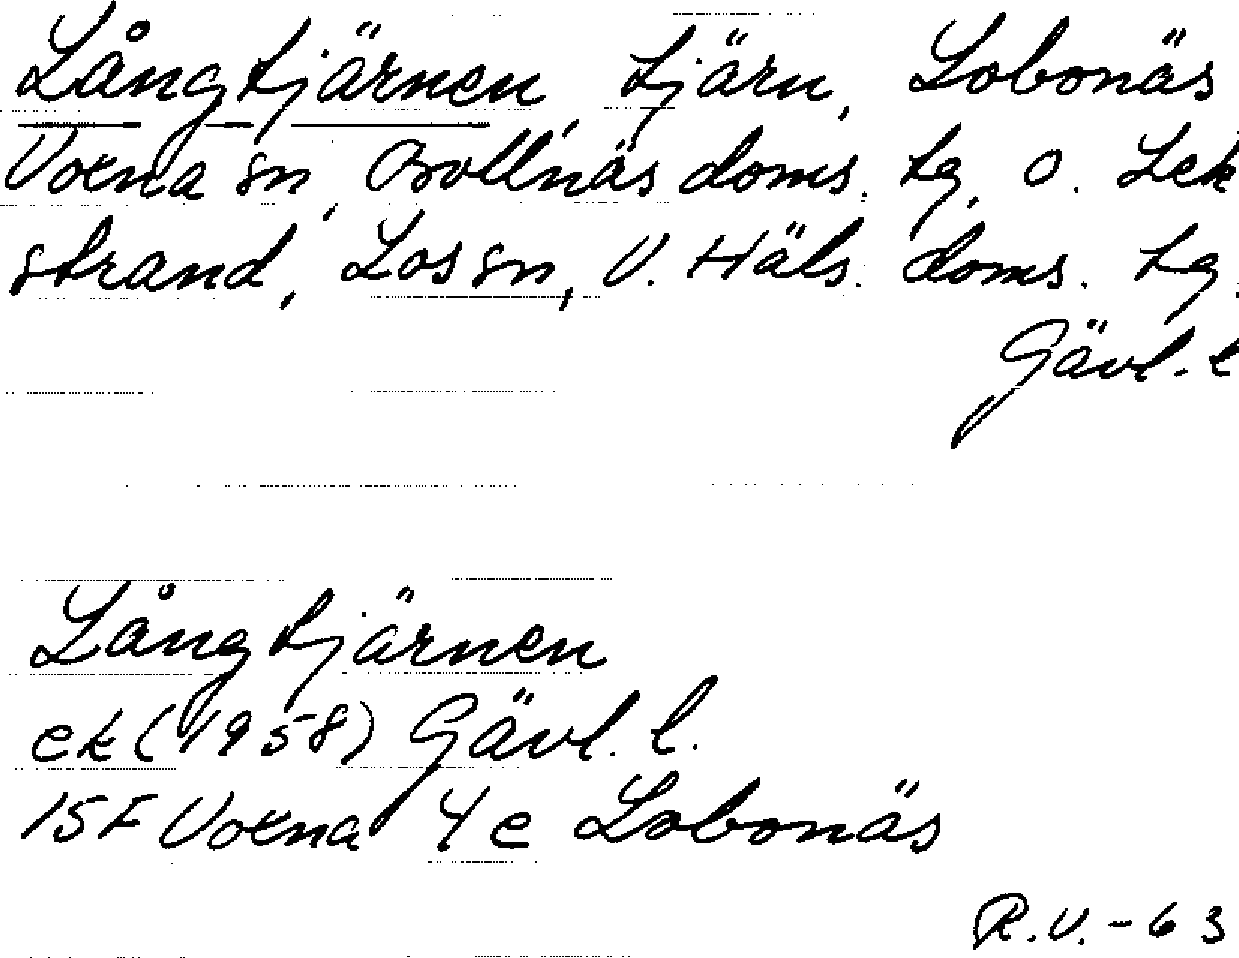 Långtjärnen, tjärn, Lobonäs
Voxna sn, Bollnäs doms. tg. o. Lek
strand, Los sn, V. Häls. doms. tg.
Gävl. l
Långtjärnen
ek (1958) Gävl. l.
15F Voxna 4e Lobonäs
R.V. - 63